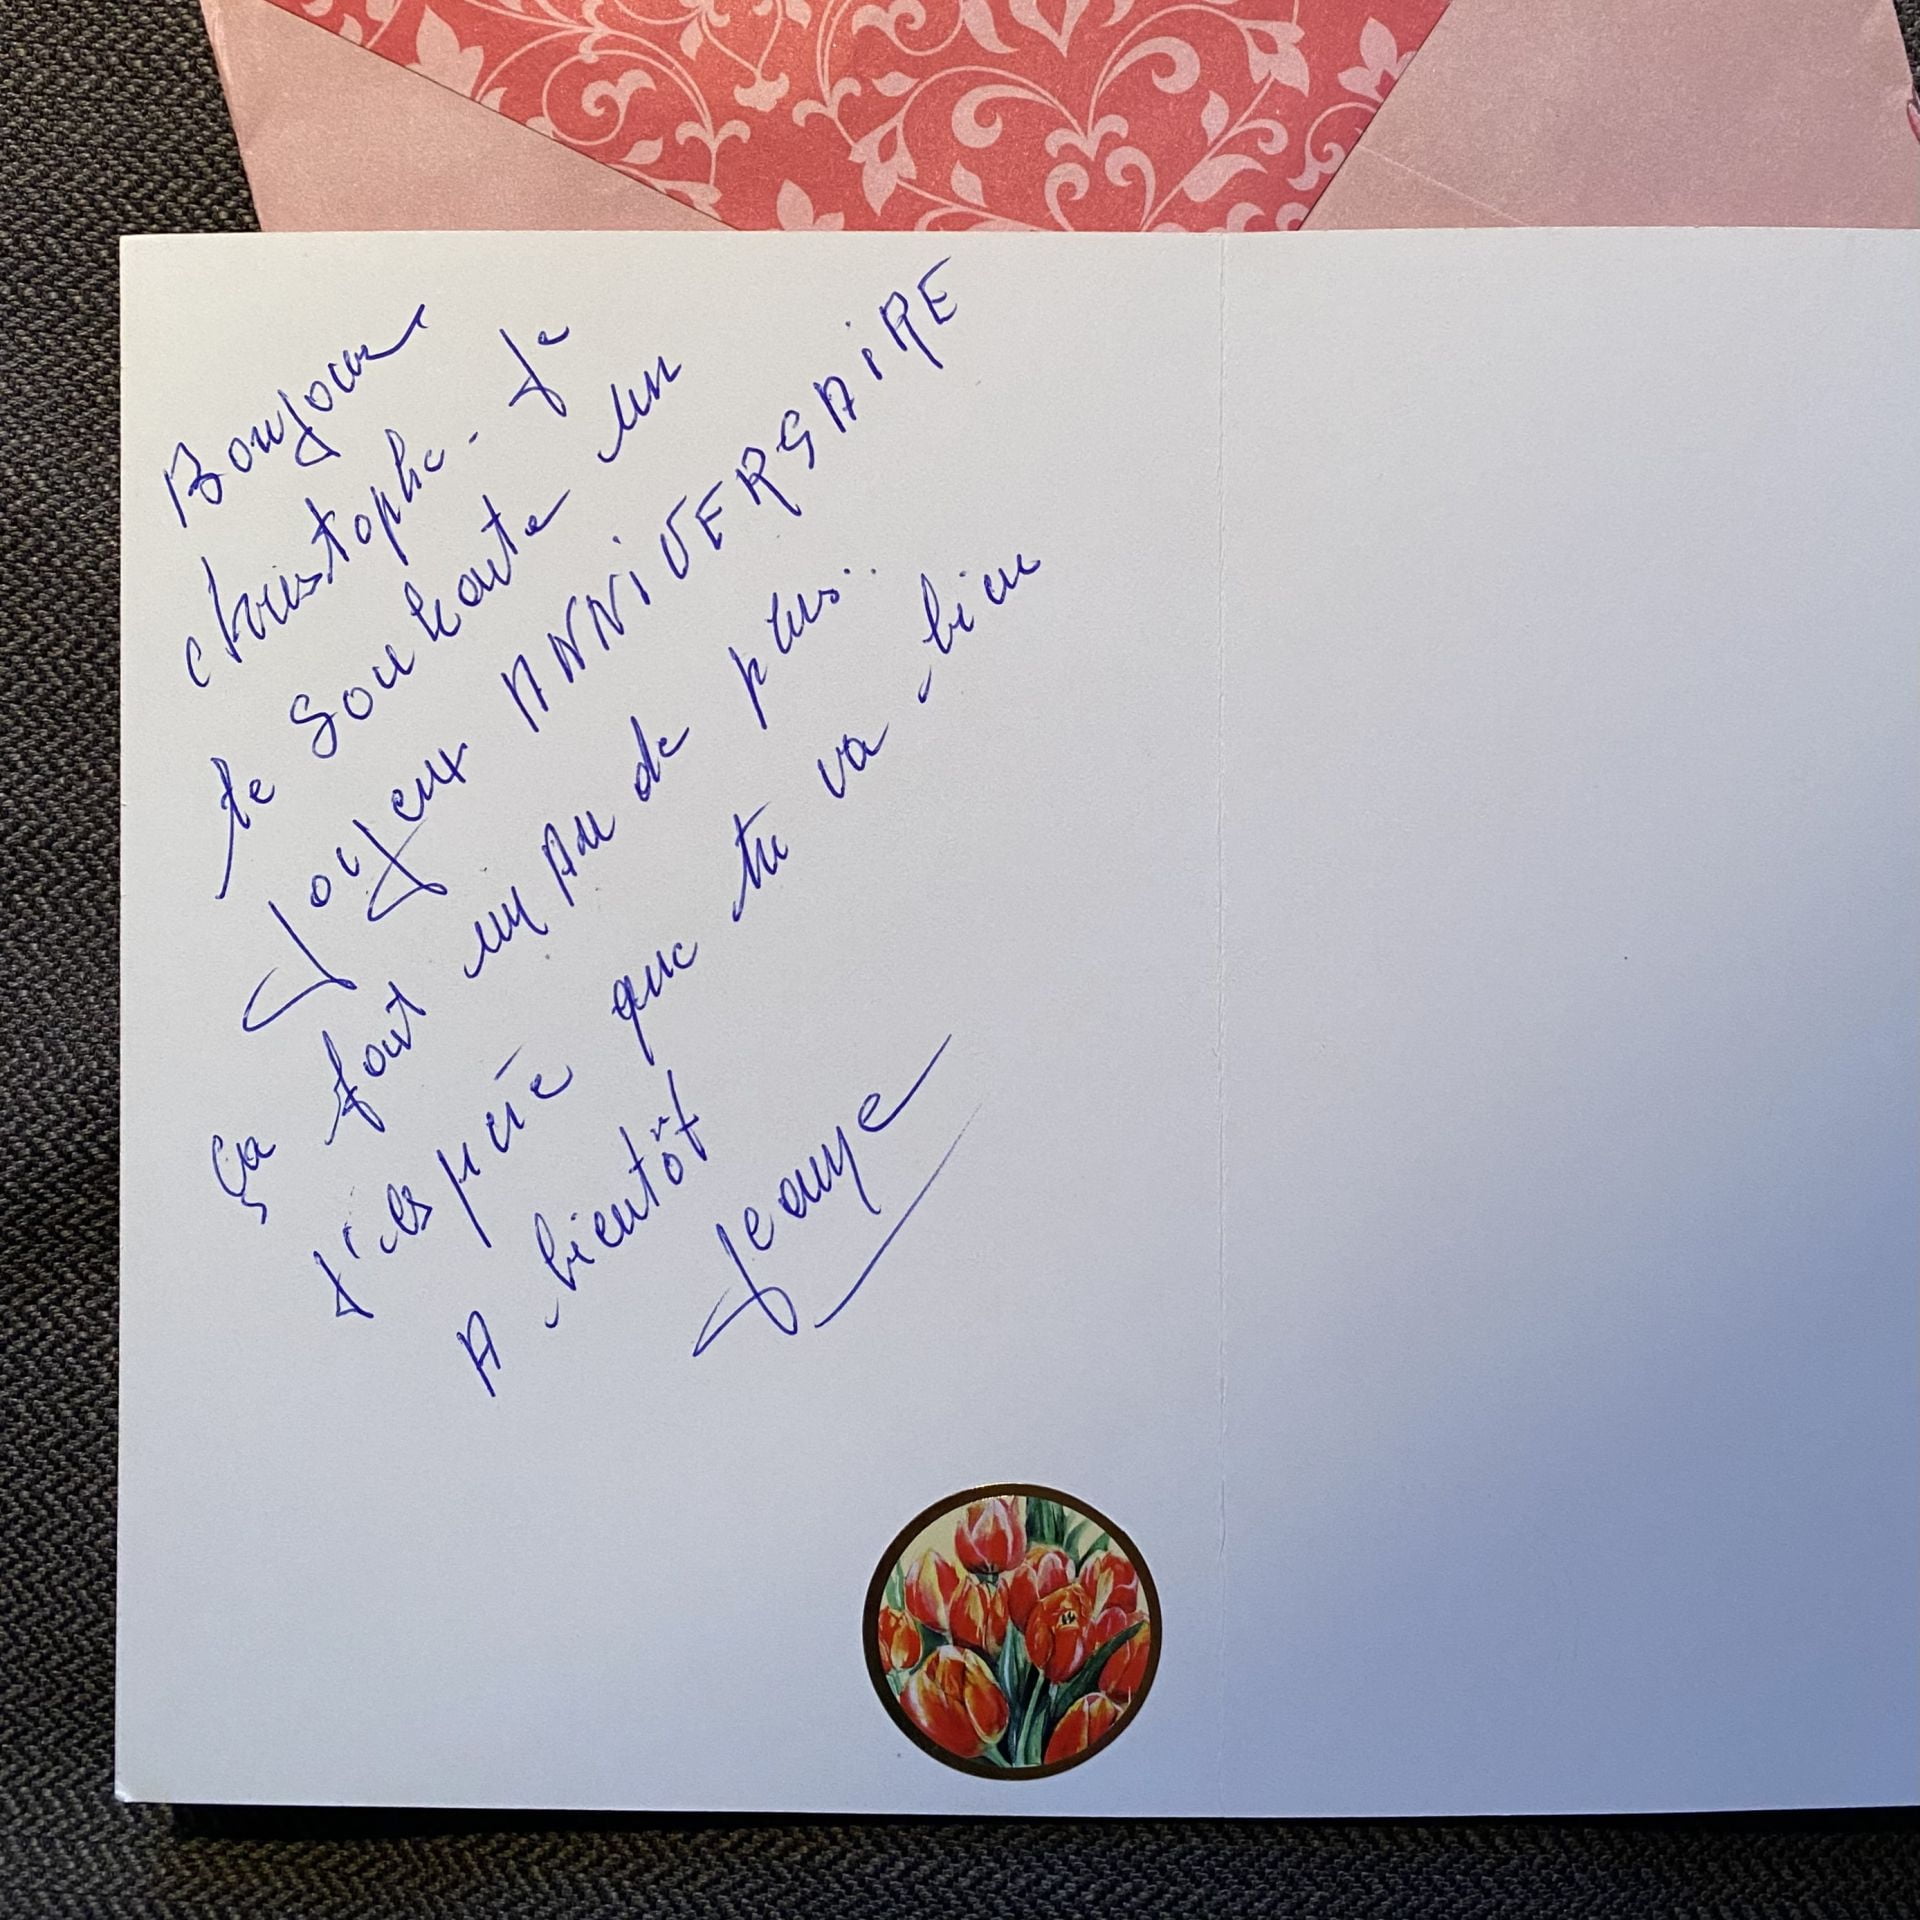 Bonjour
christophe - Je
te souhaite un
Joyeux ANNIVERSAIRE
ça fait un An de plus..
J'espère que tu va bien
A bientôt